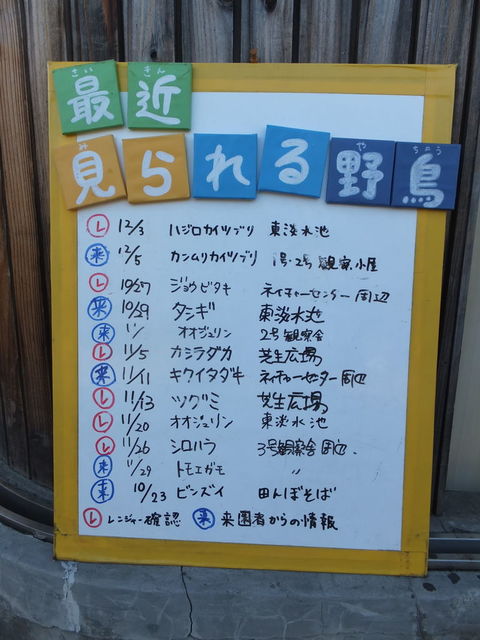 さい きん
最近
み や ちょう
見られる野鳥
レ 12/3 ハジロカイツブリ 東淡水池
来 12/5 カンムリカイツブリ 1号・2号 観察小屋
レ 10/27 ジョウビタキ ネイチャーセンター周辺
来 10/29 タシギ 東淡水池
来 11/ オオジュリン 2号観察舎
レ 11/5 カシラダカ 芝生広場
来 11/11 キクイタダキ ネイチャーセンター周辺
レ 11/13 ツグミ 芝生広場
レ 11/20 オオジュリン 東淡水池
レ 11/26 シロハラ 3号観察舎周辺
来 11/29 トモエガモ 〃
来 10/23 ビンズイ 田んぼそば
レ レンジャー確認 来 来園者からの情報